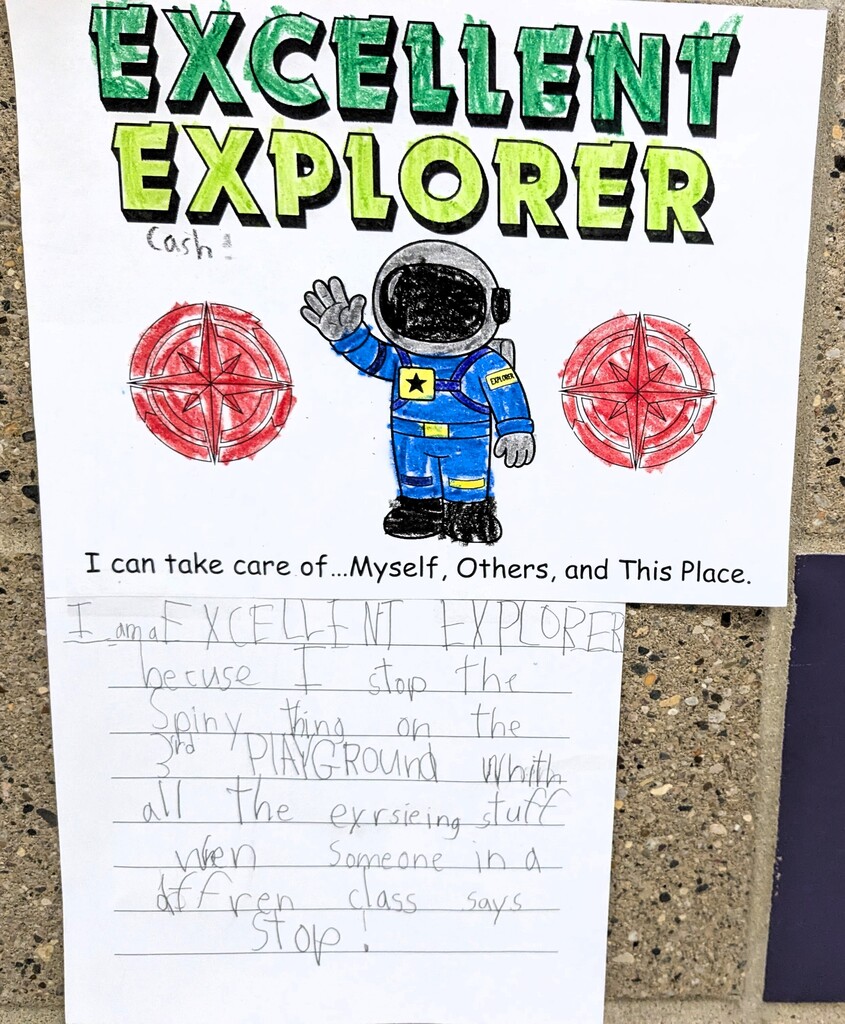 EXCELLENT
EXPLORER
Cash!
EXPLORER
I can take care of...Myself, Others, and This Place.
I am a EXCELLENT EXPLORER
becuse I stop the
Spiny thing on the
3rd PLAYGROUnd whith
all the exrsieing stuff
when someone in a
diffren class says
stop!